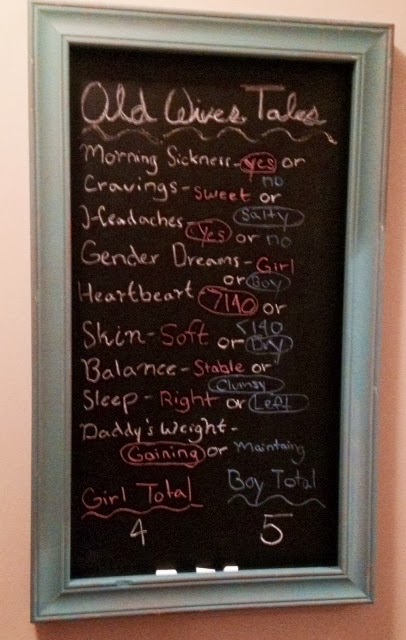 Old Wives Tales
Morning Sickness - yes or
no
Cravings - sweet or
Salty
Headaches -
yes or no
Gender Dreams - Girl
or Boy
Heartbeart >140 or
<140
Skin - Soft or Dry
Balance - Stable or
Clumsy
Sleep - Right or Left
Daddy's Weight -
Gaining or Maintaing
Girl Total Boy Total
4 5